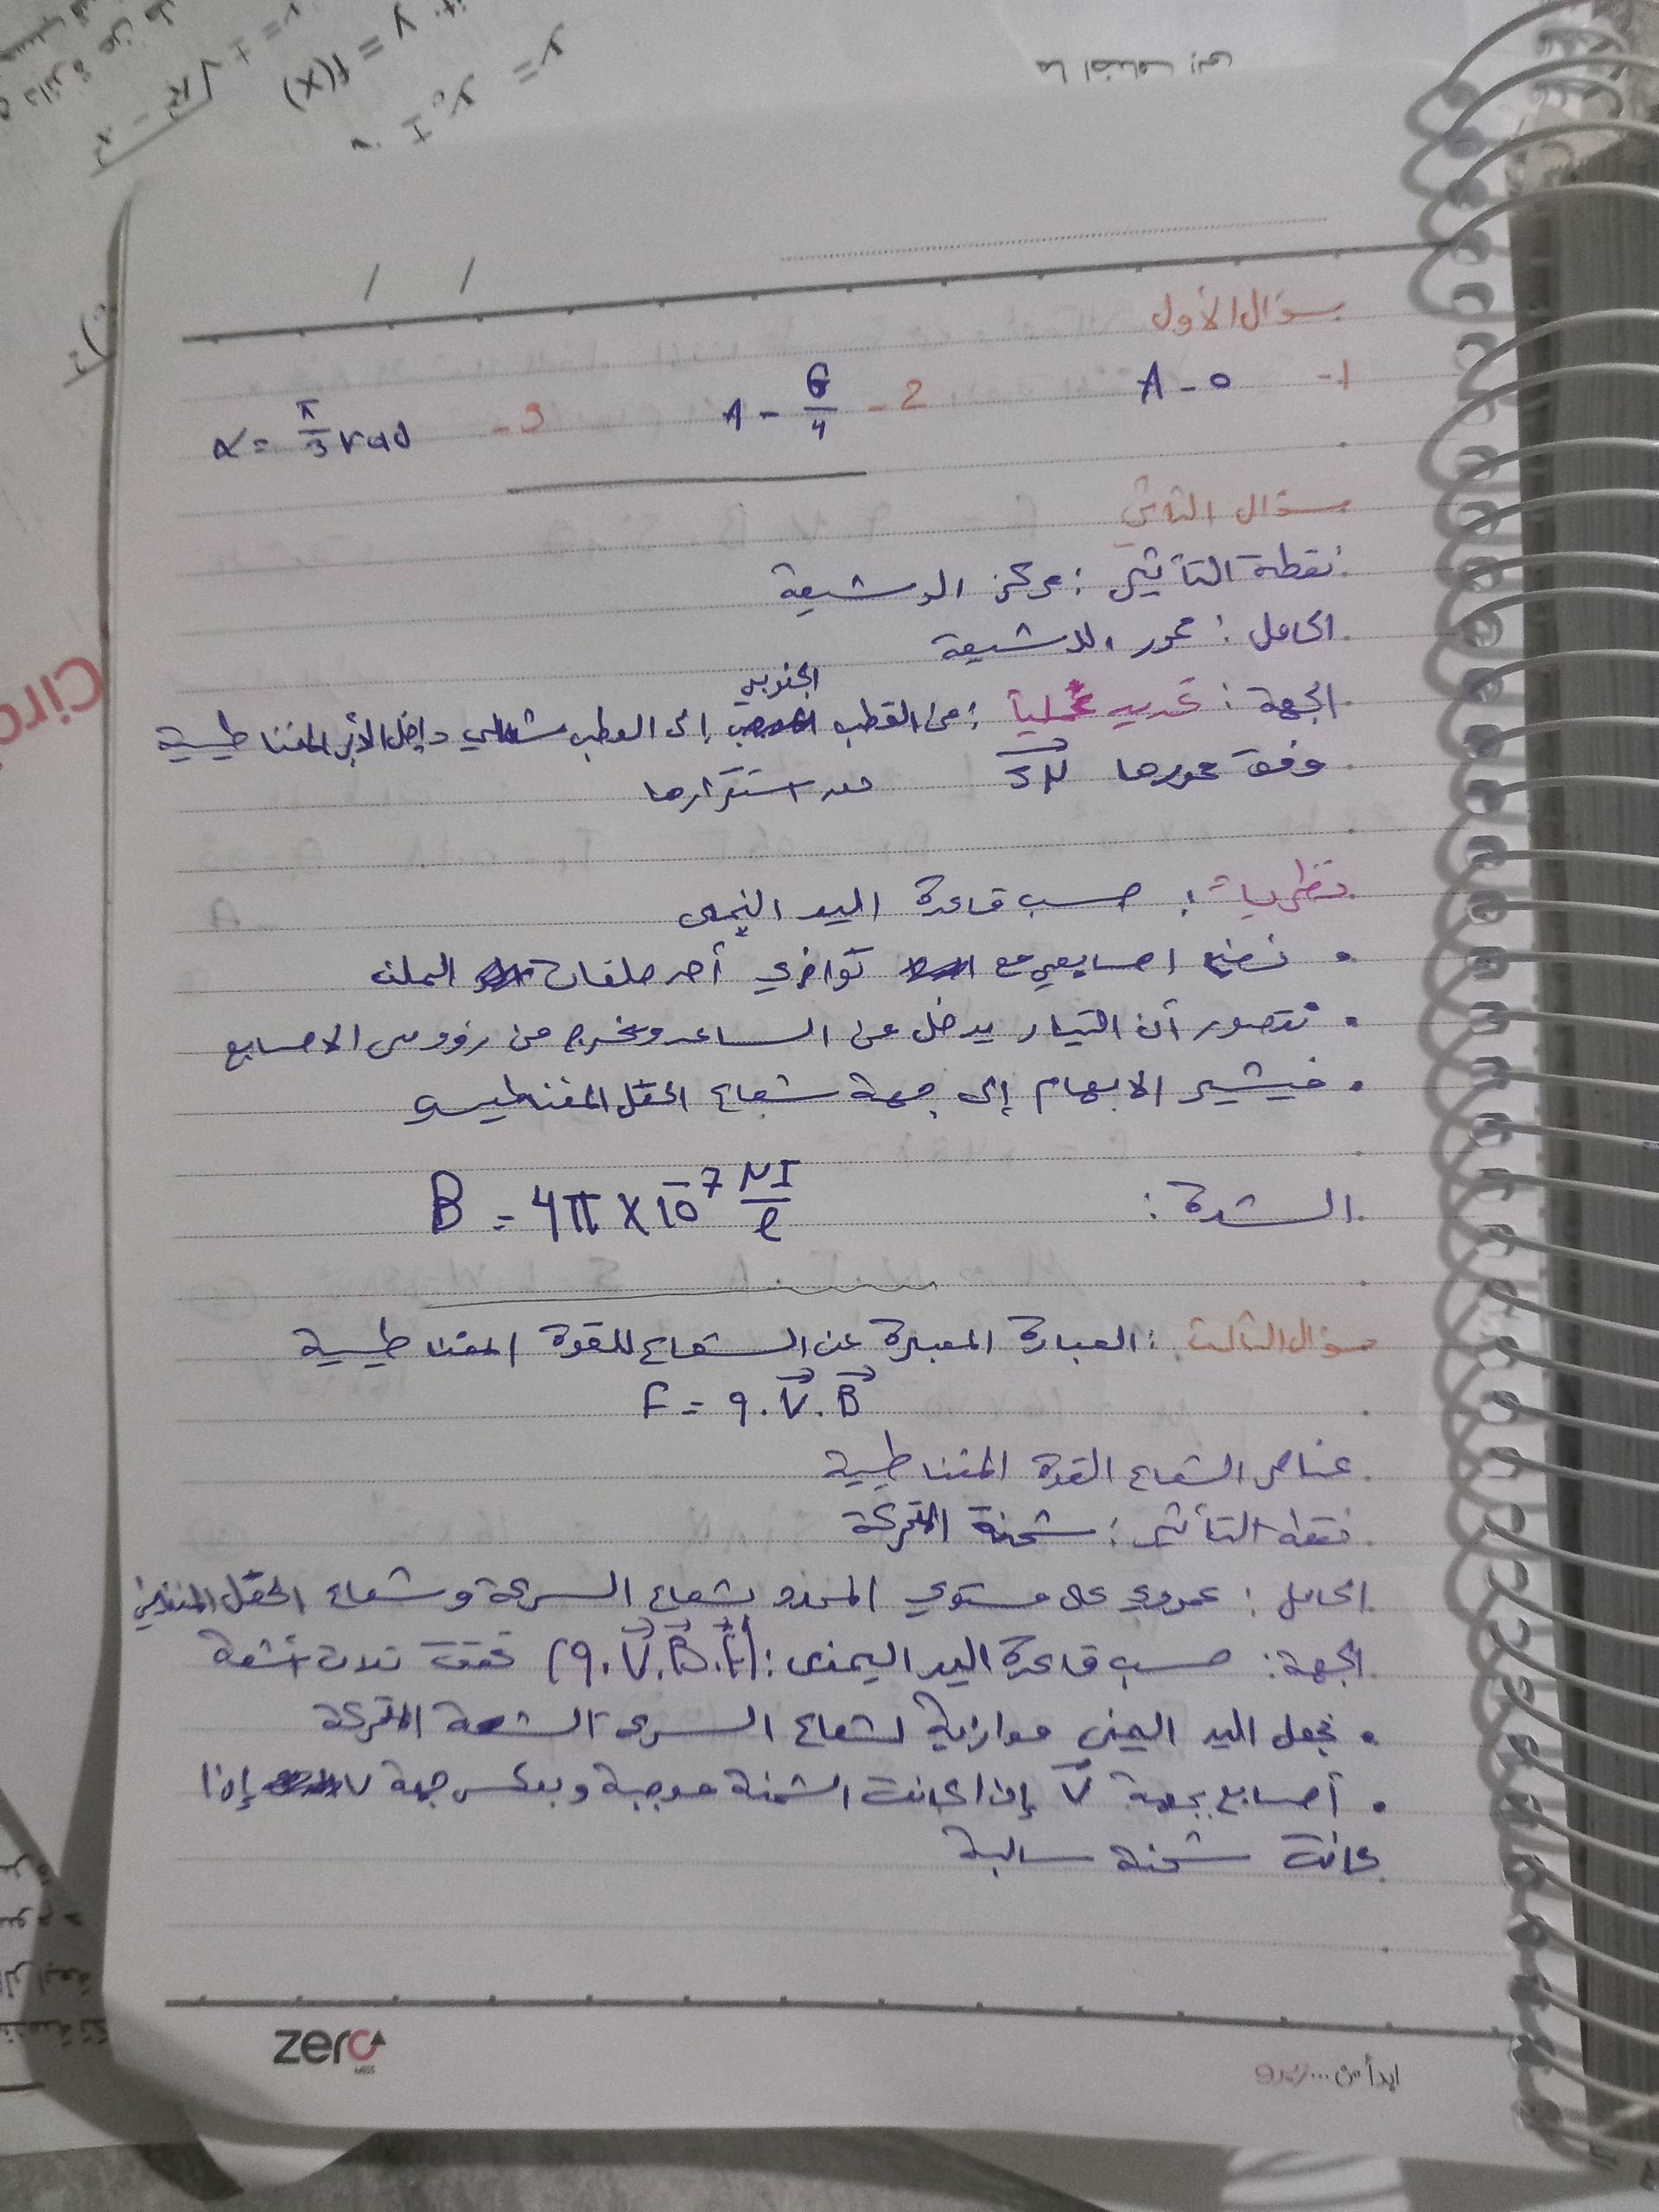 سؤال الأول
1- A - 0
2- A - G/4
3- α = π/3 rad
سؤال الثاني
نقطة التأثير : مركز الوشيعة
الحامل : محور الوشيعة
الجهة : تحديد عملياً : من القطب الجنوبي إلى القطب شمالي داخل الأبر المغناطيسية
وفق محورها SN بعد استقرارها
نظرياً : حسب قاعدة اليد اليمنى
• نضع اصابعي مع توازي أحد حلقات الملف
• نتصور أن التيار يدخل من الساعد ويخرج من رؤوس الاصابع
• فيشير الابهام إلى جهة شعاع الحقل المغناطيسي
الشدة : B = 4π × 10⁻⁷ NI/ℓ
سؤال الثالث : العبارة المعبرة عن الشعاع للقوة المغناطيسية
F = q . V⃗ . B⃗
عناصر الشعاع القوة المغناطيسية
نقطة التأثير : شحنة المتحركة
الحامل : عمودي على مستوي المحدد بشعاع السرعة وشعاع الحقل المغناطيسي
الجهة : حسب قاعدة اليد اليمنى : (q . V⃗ . B⃗ . F⃗) تحقق ثلاث أشعة
• نجعل اليد اليمنى موازية لشعاع السرعة الشحنة المتحركة
• أصابع بجهة V⃗ إذا كانت الشحنة موجبة وبعكس جهة V إذا
كانت شحنة سالبة
zero
ابدأ من ... zero
y = f(x)